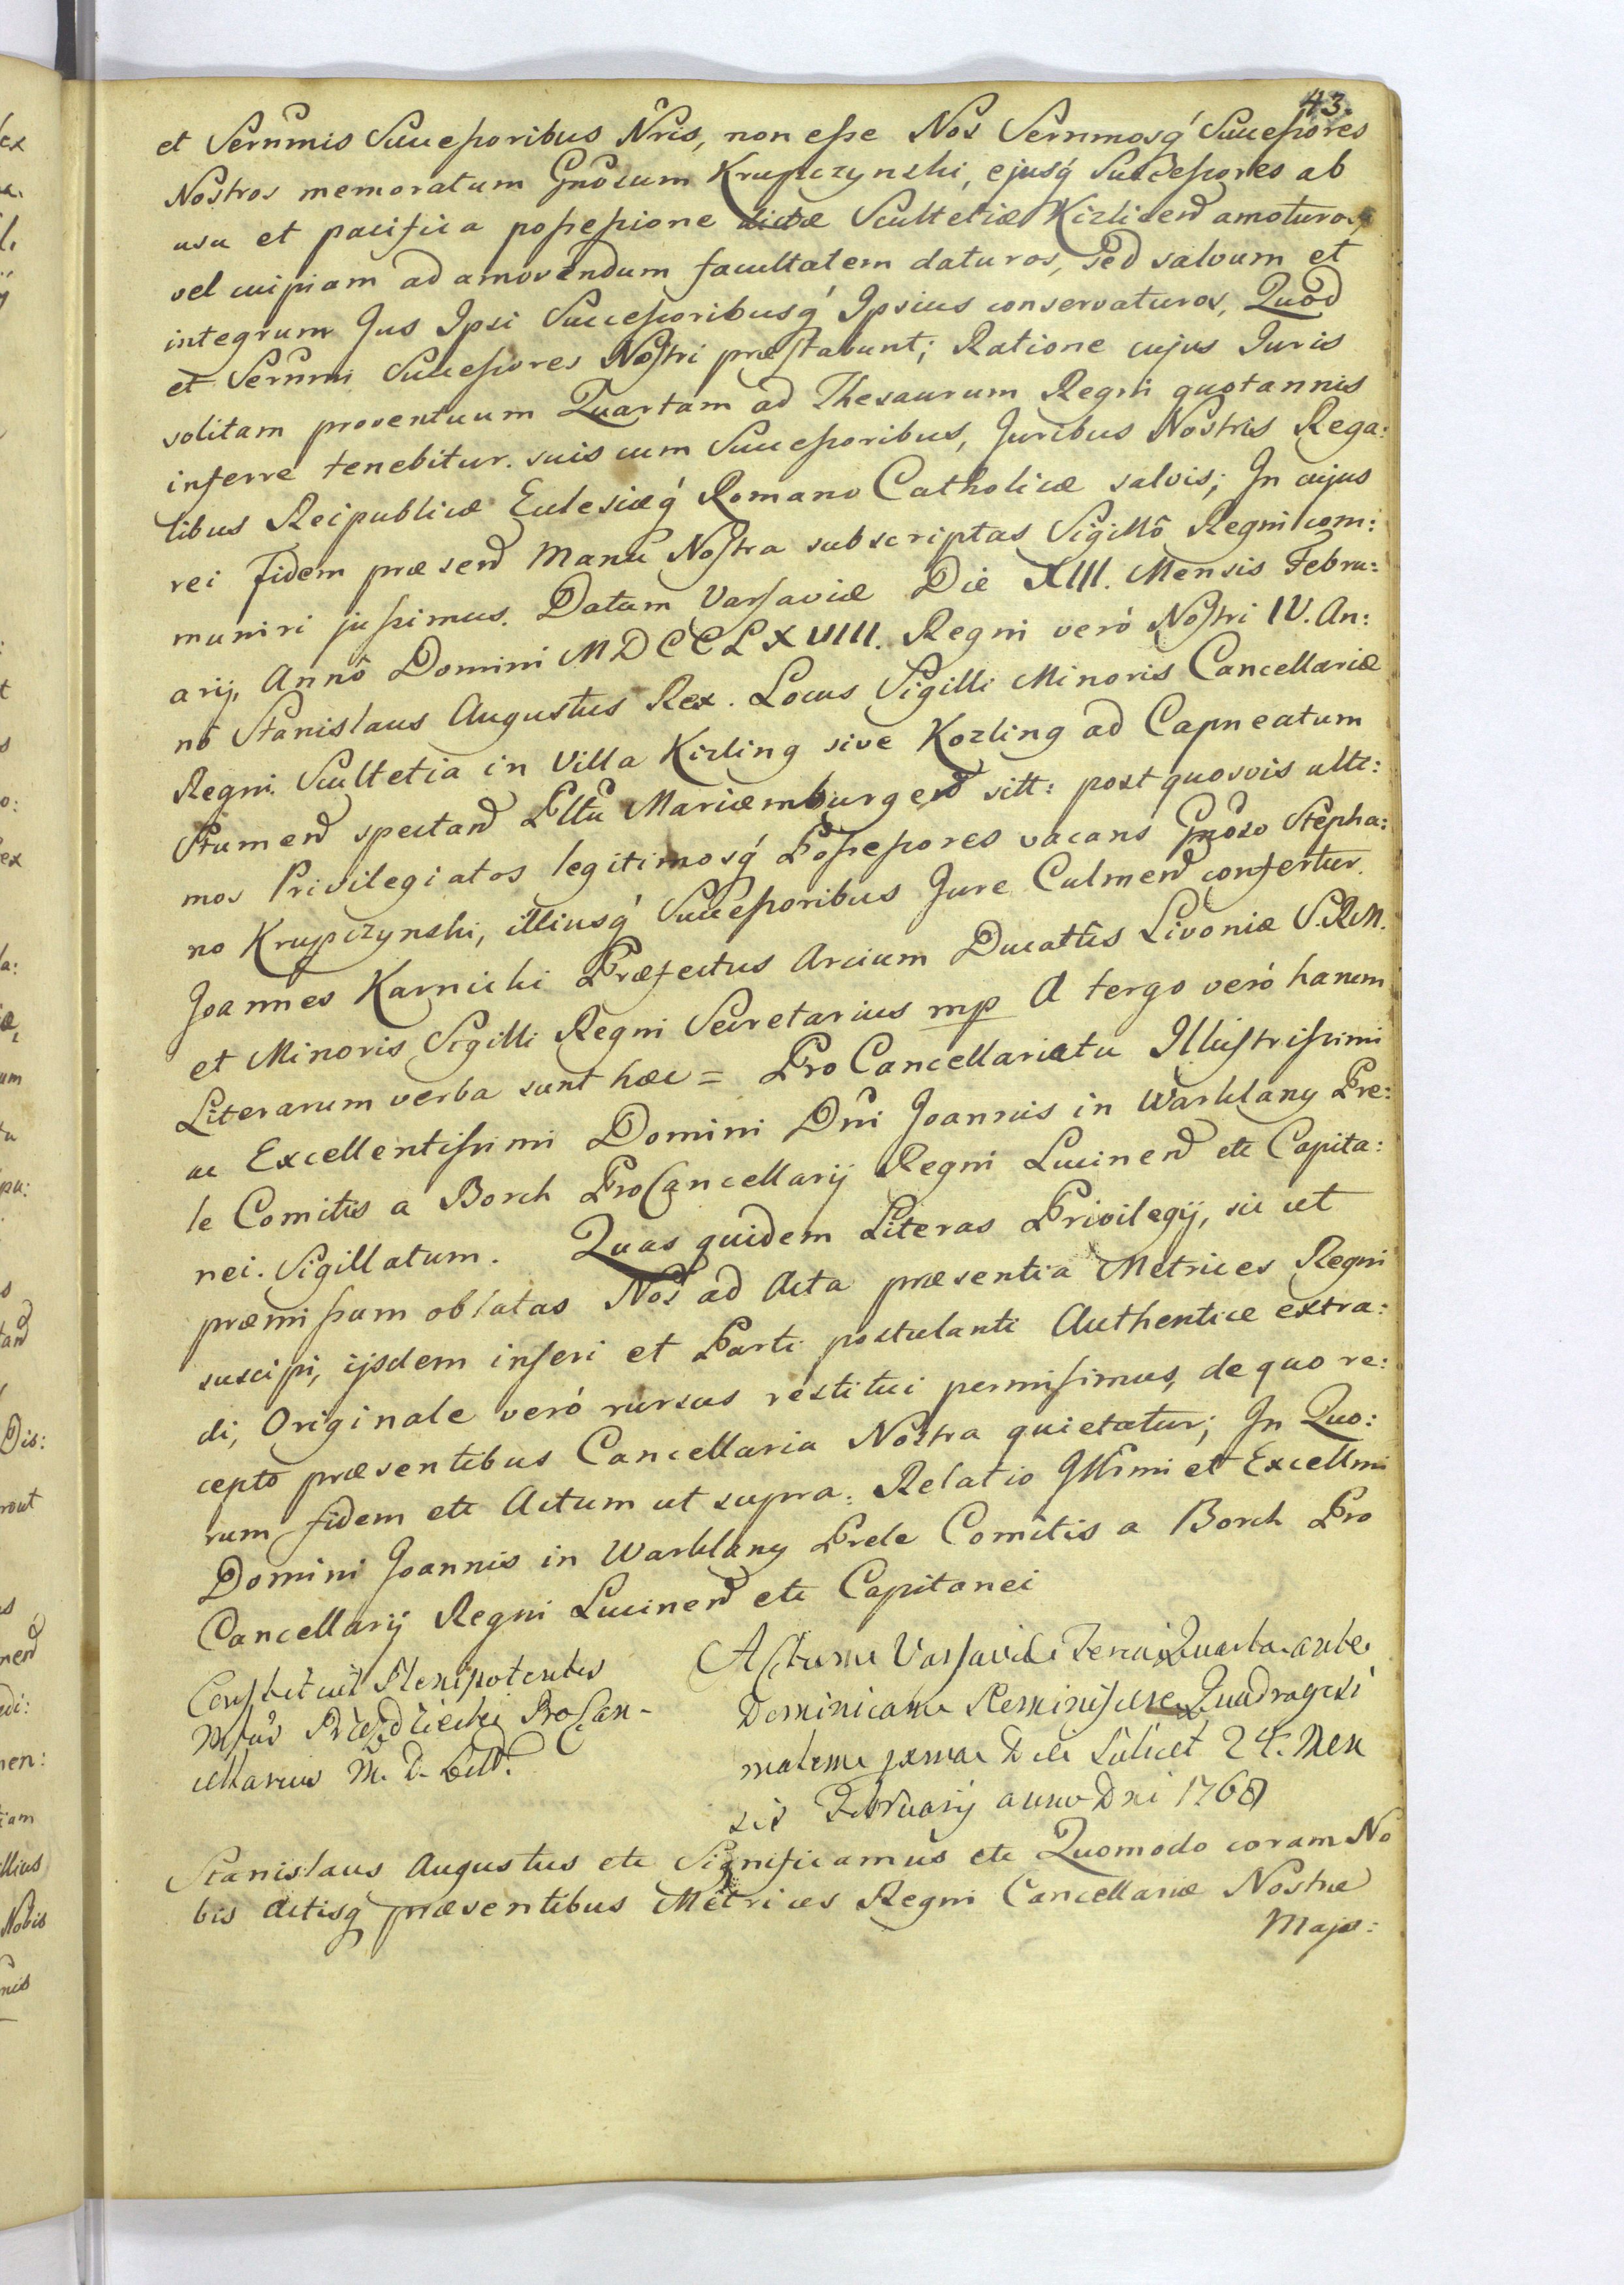 43.
et Sernmis Successoribus Nris, non esse Nos Sernmosq́ Successores
Nostros memoratum Gnosum Krupczynski, ejusq́ Successores ab
usu et pacifica possessione dictæ Scultetiæ Kizlicen amoturos,
vel cuipiam ad amovendum facultatem daturos, sed salvum et
integrum Jus Ipsi Successoribusq́ Ipsius conservaturos, Quod
et Sernmi Successores Nostri præstabunt; Ratione cujus Juris
solitam proventuum Quartam ad Thesaurum Regni quotannis
inferre tenebitur. suis cum Successoribus, Juribus Nostris Rega:
libus Reipublicæ Eclesiæq́ Romano Catholicæ salvis; In cujus
rei fidem præsen Manu Nostra subscriptas Sigillô Regni com:
muniri jussimus. Datum Varsaviæ Die XIII. Mensis Febru:
arij, Annô Domini MDCCLXVIII. Regni verò Nostri IV. An:
nô Stanislaus Augustus Rex. Locus Sigilli Minoris Cancellariæ
Regni. Scultetia in Villa Kizling sive Kozling ad Capneatum
Stumen spectan Pltu Mariæmburgen sitt: post quosvis ulti:
mos Privilegiatos legitimosq́ Possessores vacans Gnoso Stepha:
no Krupczynski, illiusq́ Successoribus Jure Culmen confertur.
Joannes Karnicki Præfectus Arcium Ducatûs Livoniæ S.R.M.
et Minoris Sigilli Regni Secretarius mp A tergo verò harum
Literarum verba sunt hæc = Pro Cancellariatu Illustrissimi
ac Excellentissimi Domini Dni Joannis in Warklany Pre:
le Comitis a Borch ProCancellarij Regni Lucinen etc Capita:
nei. Sigillatum. Quas quidem Literas Privilegij, sic ut
præmissum oblatas Nos ad Acta præsentia Metrices Regni
suscipi, ijsdem inseri et Parti postulanti Authentice extra:
di, Originale verò rursus restitui permisimus, de quo re:
cepto præsentibus Cancellaria Nostra quietatur; In Quo:
rum fidem etc Actum ut supra. Relatio Illmi et Excellmi
Domini Joannis in Warklany Prele Comitis a Borch Pro
Cancellarij Regni Lucinen etc Capitanei
Constituit Plenipotentes
Procan-
cellarius M. D. Litt.
Actum Varsaviæ Feria Quarta ante
Dominicam Reminiscere Quadragesi
malem proxima Die scilicet 24. Men
sis Februarij anno Dni 1768
Stanislaus Augustus etc Significamus etc Quomodo coram No
bis Actisq́ præsentibus Metrices Regni Cancellariæ Nostræ
Major: